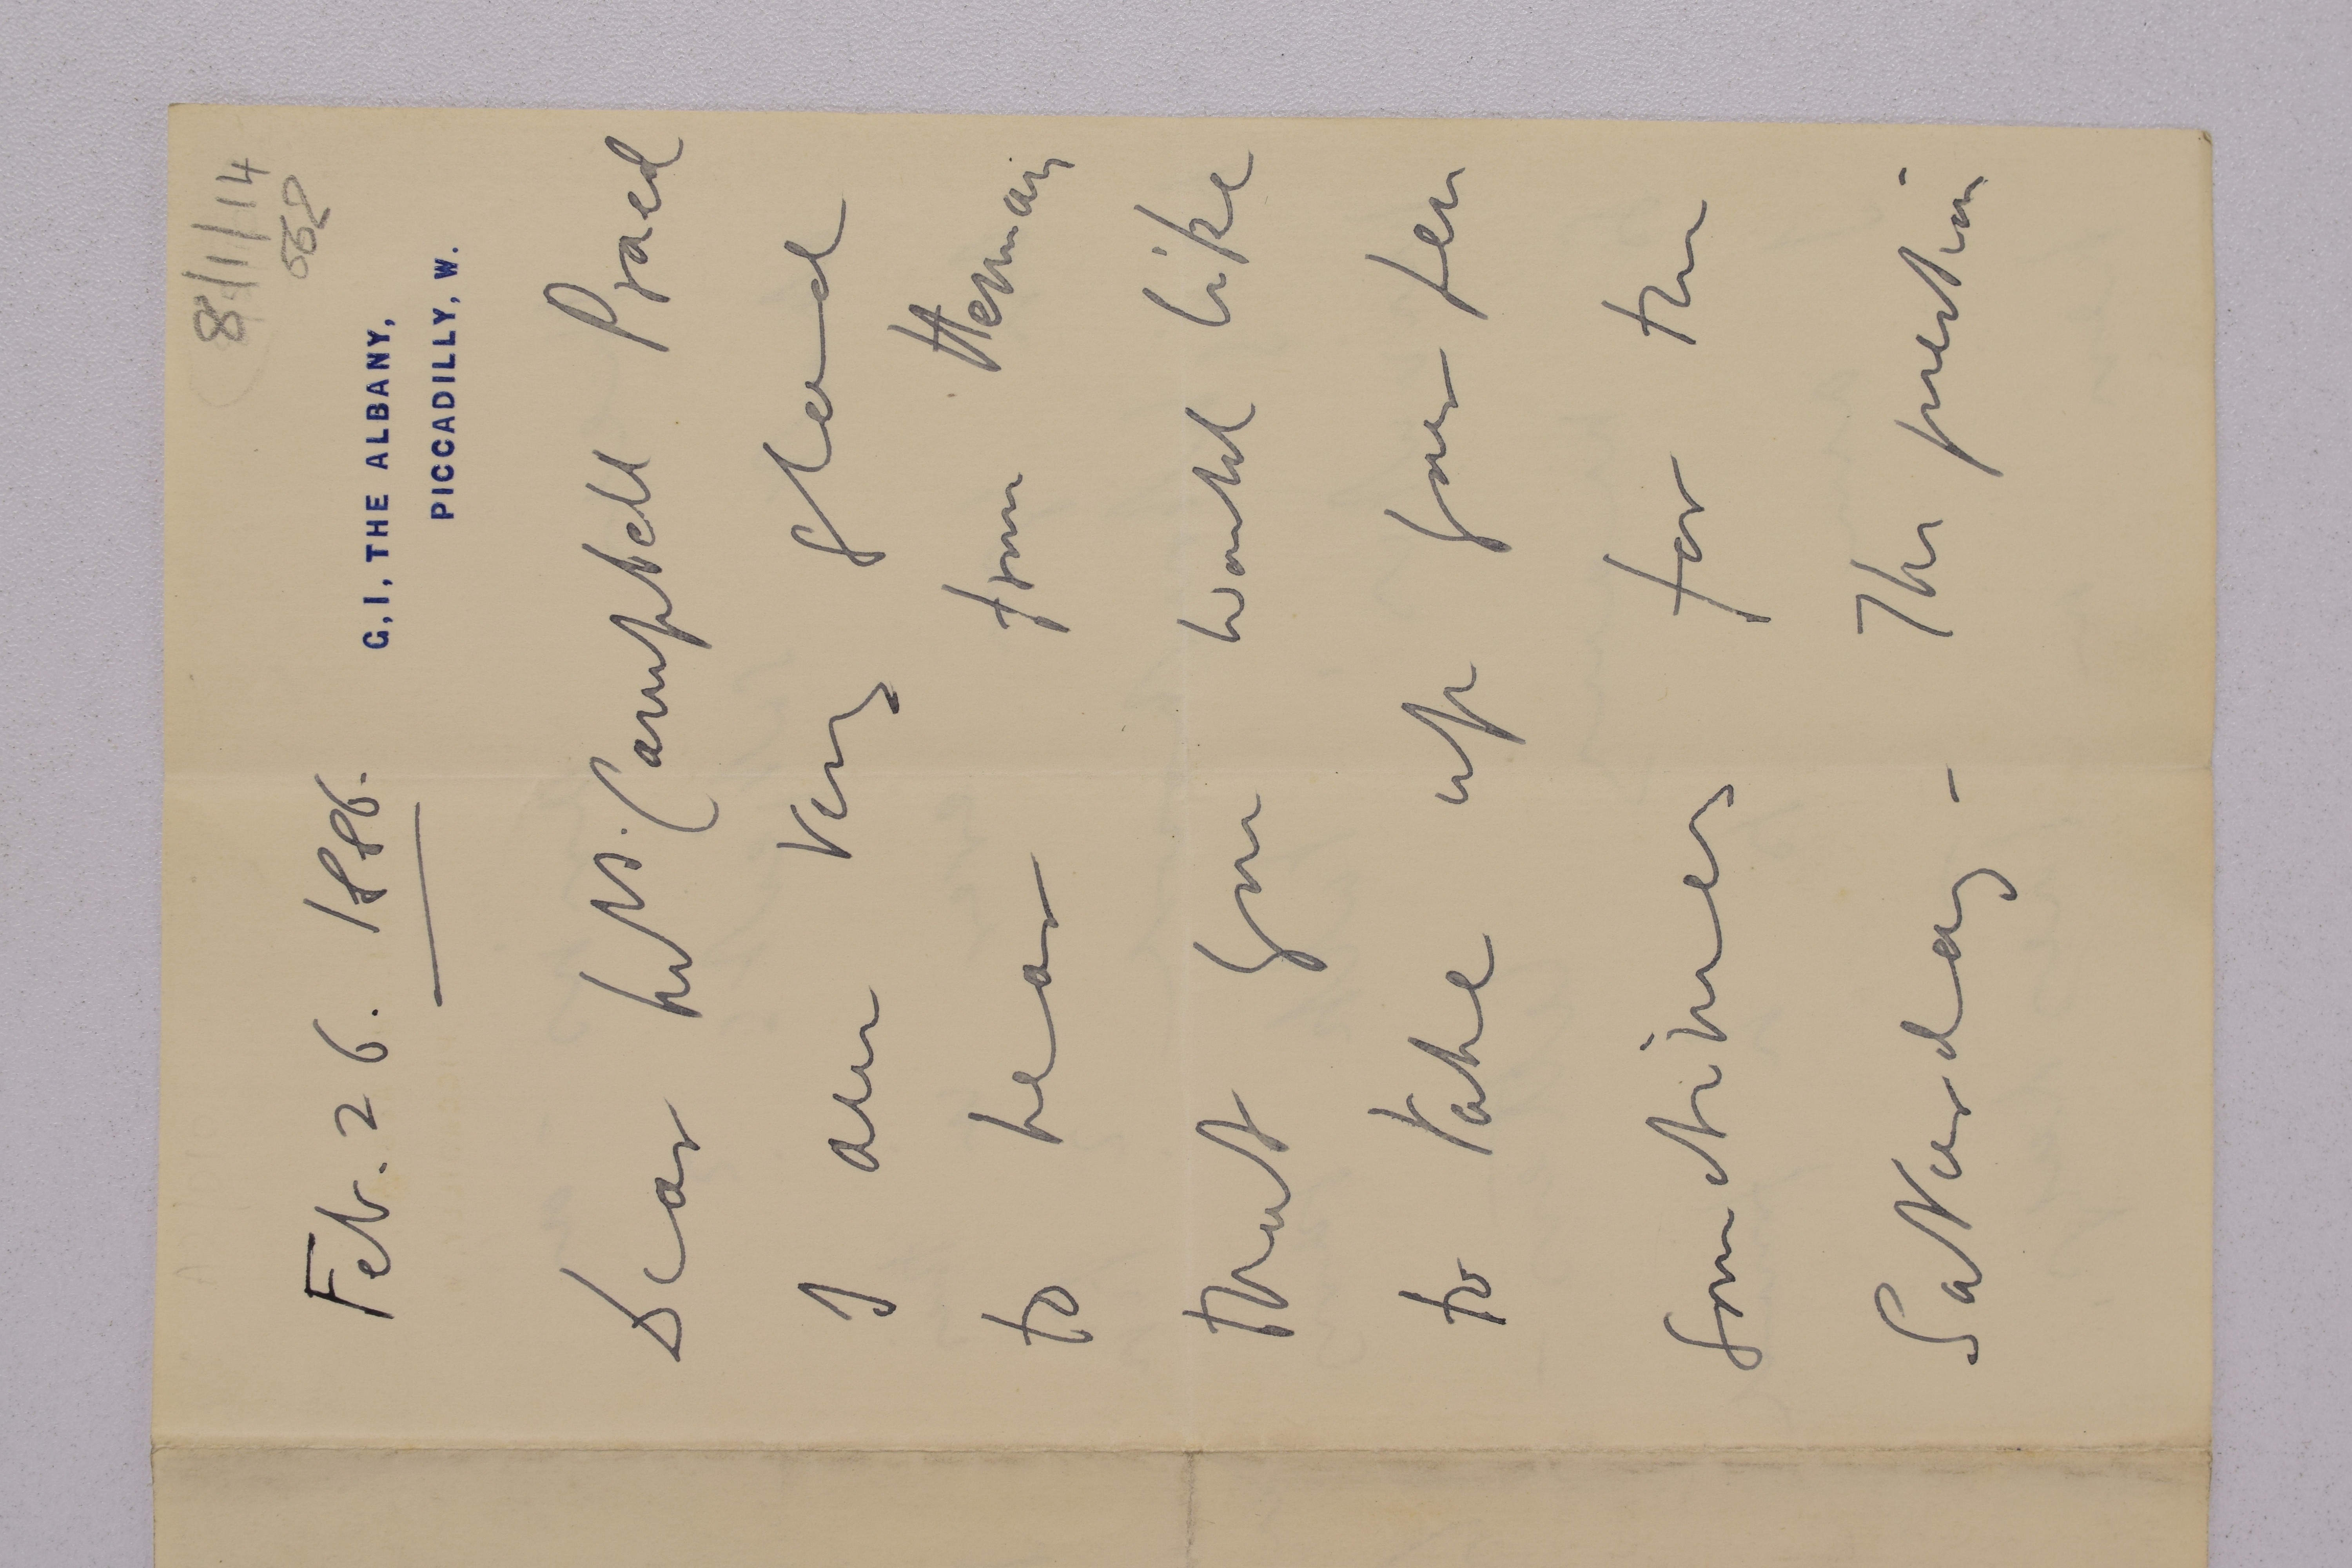 8/11/14
552
G, 1, THE ALBANY,
PICCADILLY, W.
Feb. 26. 1886.
Dear Mrs. Campbell Praed
I am very glad
to hear from Herman
that you would like
to take up your pen
sometimes for the
Saturday – The question